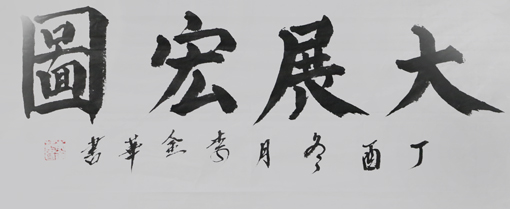 大展宏圖
丁酉冬月李金華書